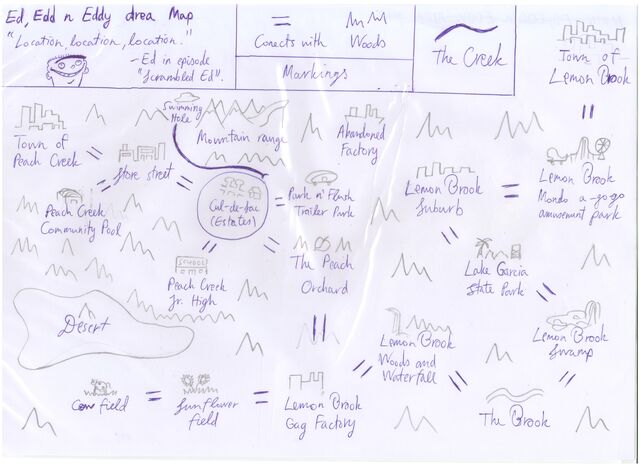 Ed, Edd n Eddy drea Map
"Location, location, location."
- Ed in episode
"Scrambled Ed".
=
Conects with
Woods
Markings
The Creek
Town of
Lemon Brook
Swimming
Hole
Mountain range
Abandoned
Factory
Town of
Peach Creek
Store street
Cul-de-sac
(Estates)
Park n' Flush
Trailer Park
Lemon Brook
Suburb
Lemon Brook
Mondo a-go-go
amusement park
Peach Creek
Community Pool
SCHOOL
Peach Creek
Jr. High
The Peach
Orchard
Lake Garcia
State Park
Desert
Lemon Brook
Woods and
Waterfall
Lemon Brook
Swamp
Cow field
Sunflower
field
Lemon Brook
Gag Factory
The Brook